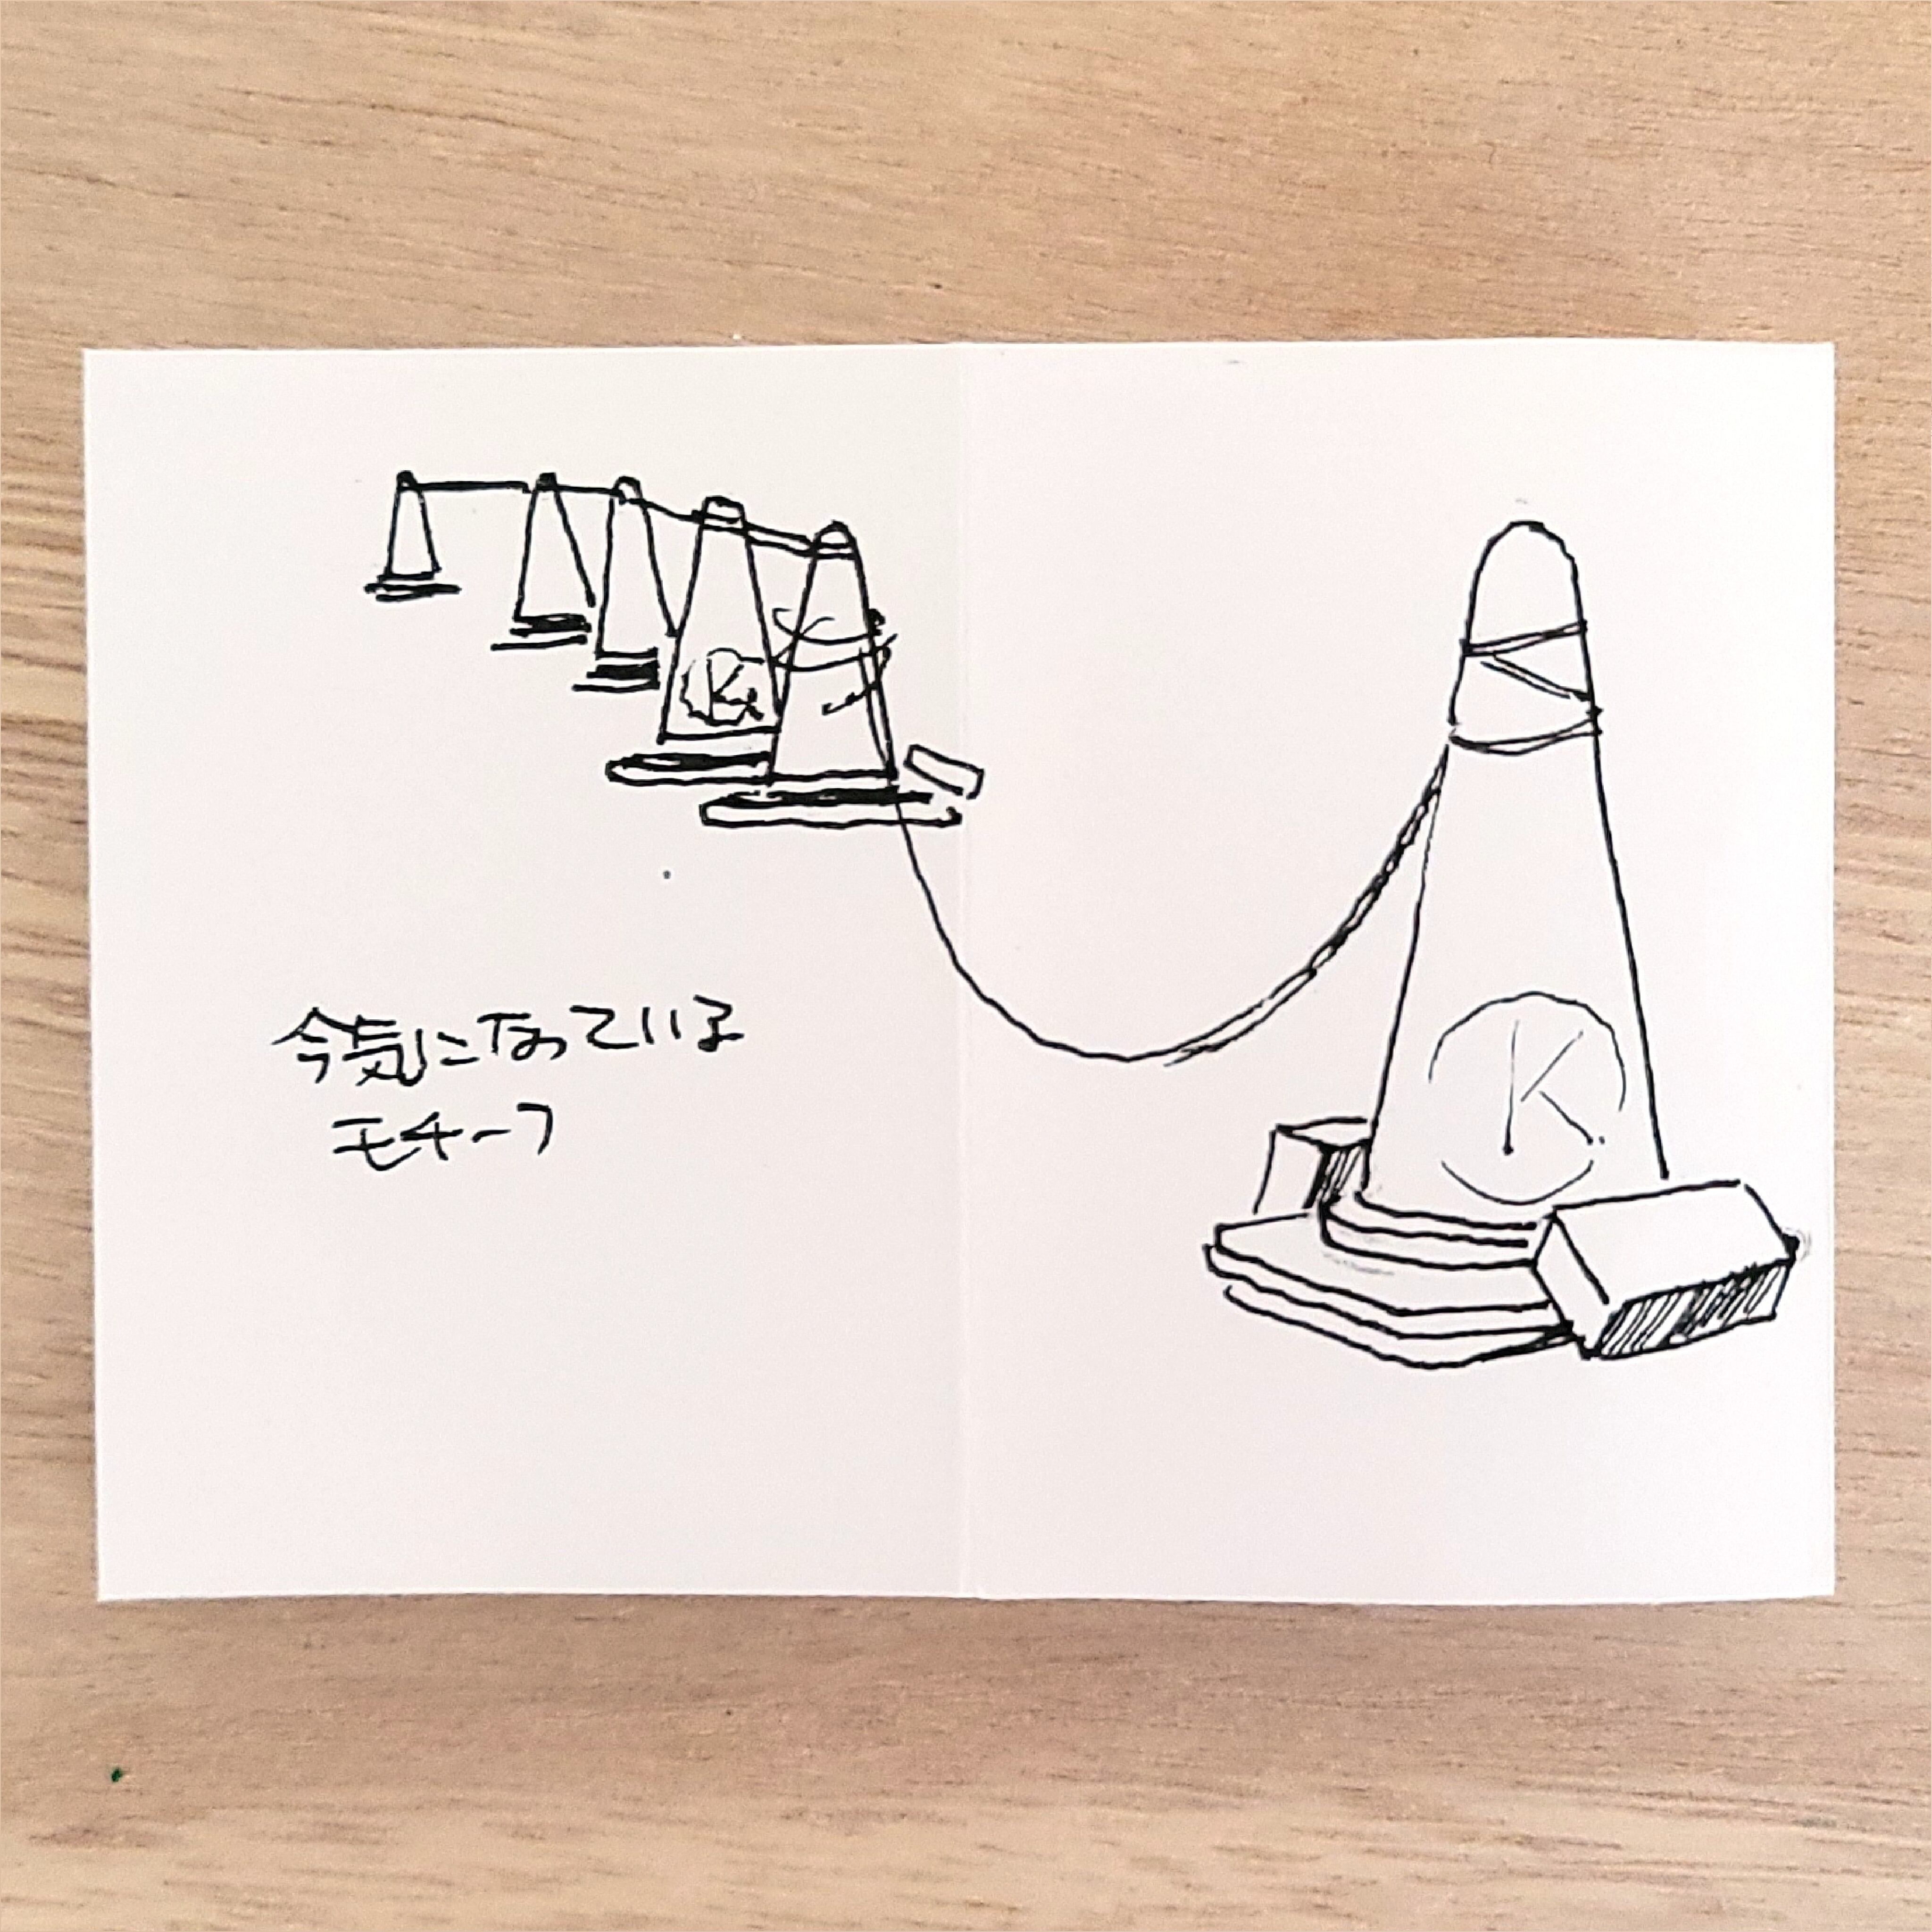 K
K
今気になっている
モチーフ